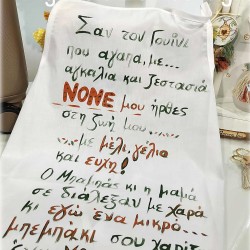 Σαν τον Γουίνι
που αγαπά, με...
αγκαλιά και ζεστασιά
ΝΟΝΕ μου ήρθες
στη ζωή μου......
...με μέλι, γέλια
και ευχή!
Ο Μπαμπάς κι η μαμά
σε διάλεξαν με χαρά
κι εγώ ένα μικρό...
μπεμπάκι σου χαρίζ